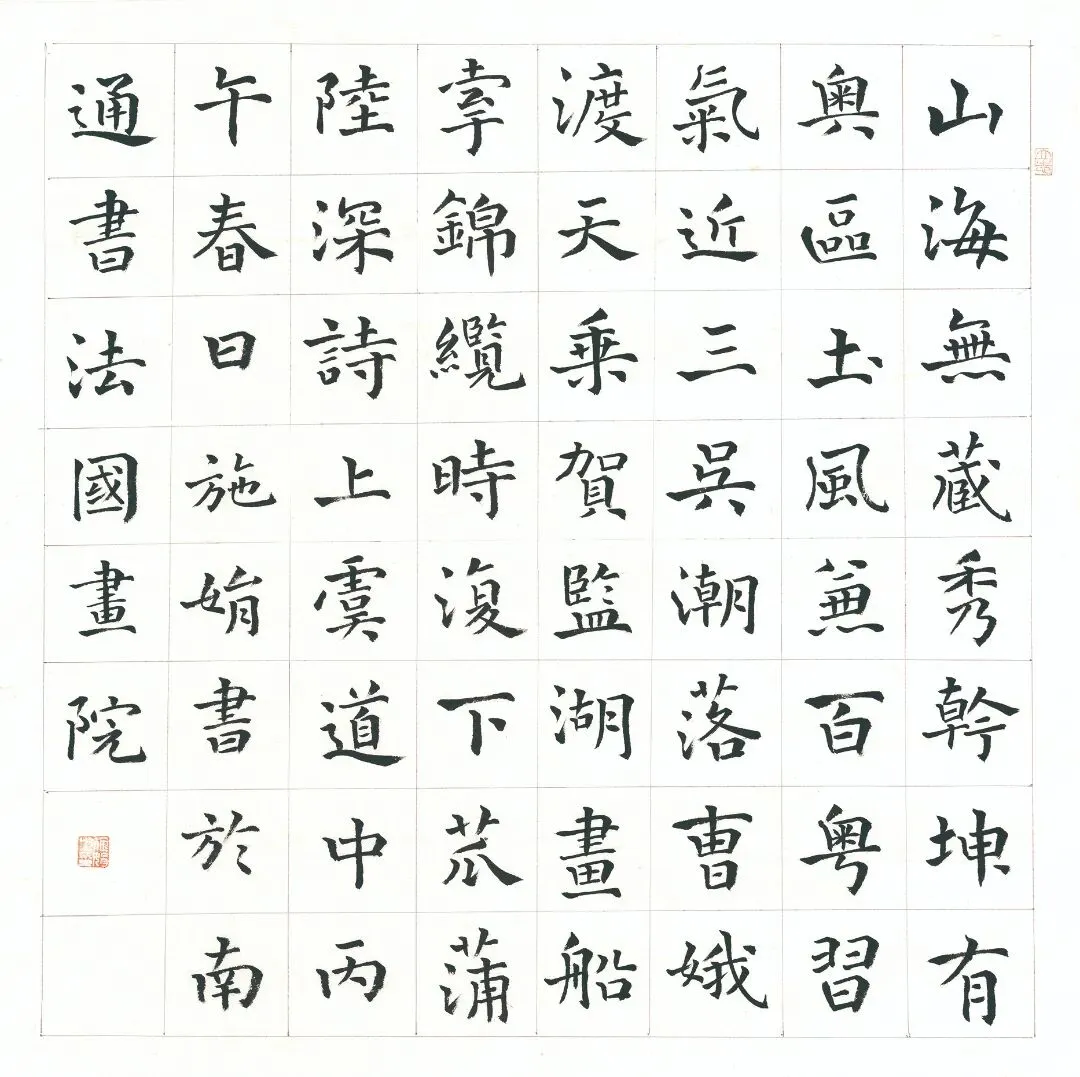 山海無蔵秀乹坤有
奧區土風蒹百粤習
氣近三吳潮落曺娥
渡天乗賀監湖畫船
宲錦纜時復下苽蒲
陸深詩上虞道中丙
午春日施娟書於南
通書法國畫院